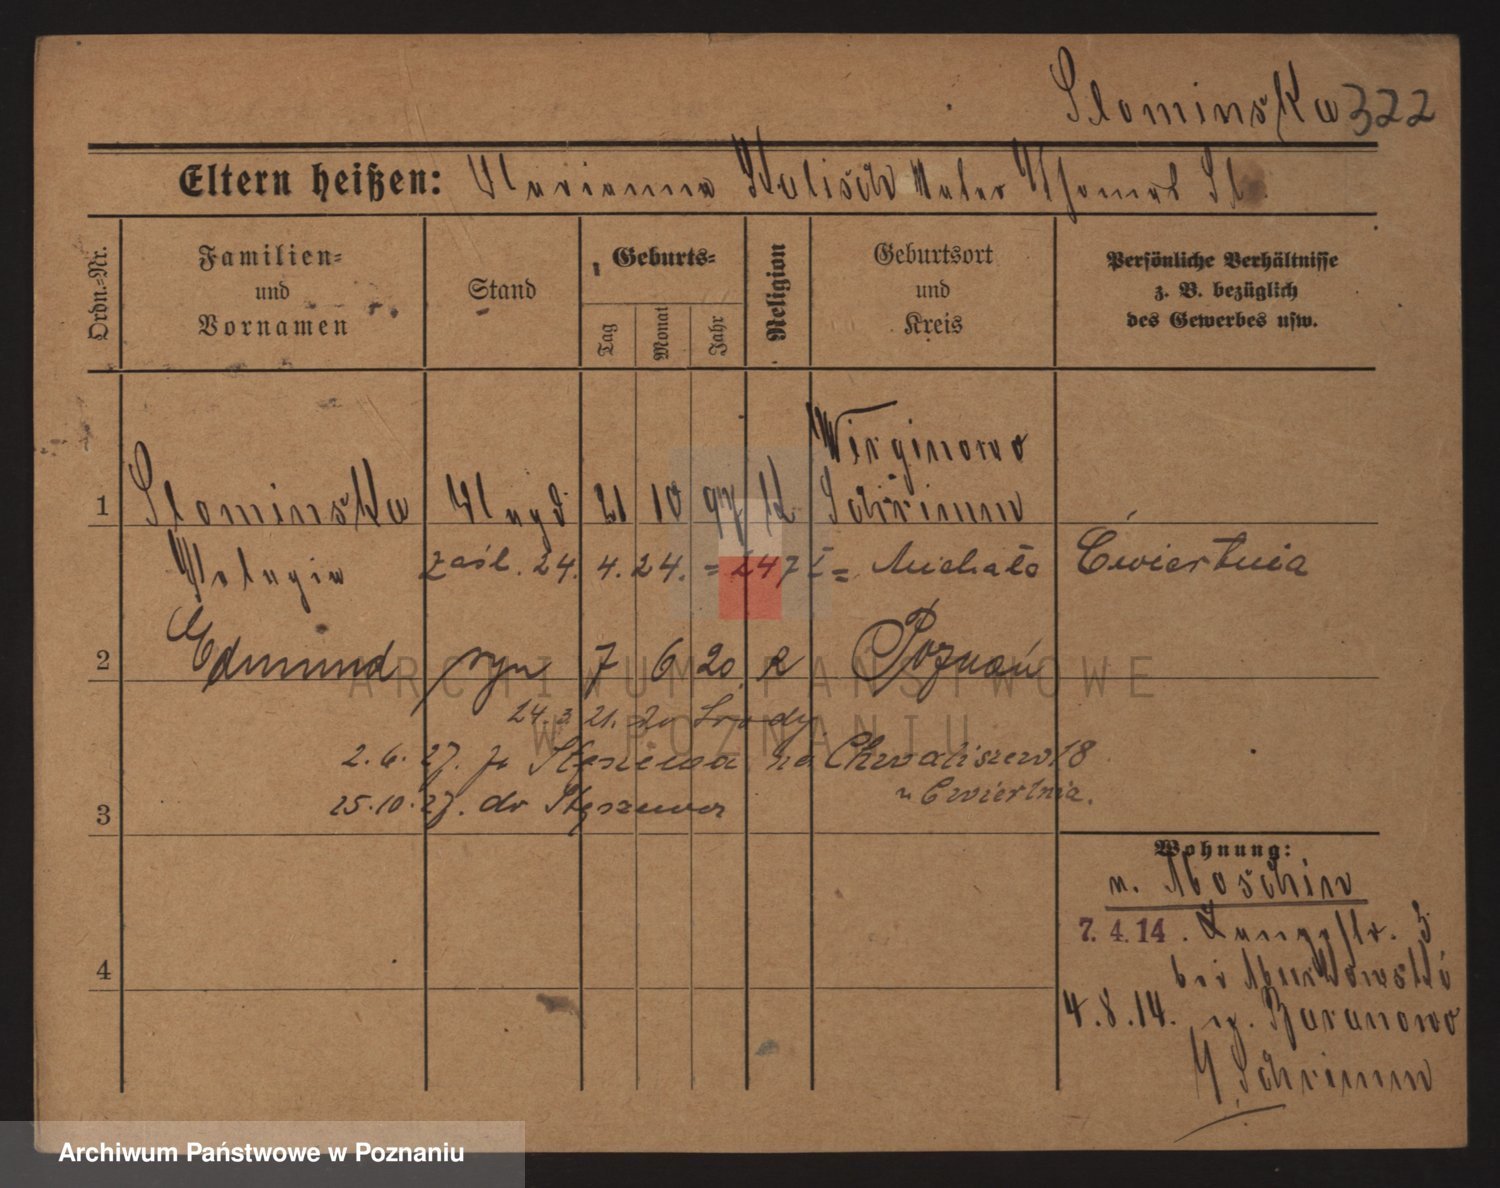 Slominska 322
Eltern heißen: Marianna Walisch Vater Thomas Sl.
Ordn.-Nr.
Familien-
und
Vornamen
Stand
Geburts-
Tag
Monat
Jahr
Religion
Geburtsort
und
Kreis
Persönliche Verhältnisse
z. B. bezüglich
des Gewerbes usw.
Wirginowo
1 Slominska Magd 21 10 97 k Schrimm
Pelagia zaśl. 24. 4. 24. = 247 I = Michała Ćwiertnia
2 Edmund syn 7 6 20 k Poznań
24. 3. 21. do Środy
2. 6. 27. z Stęszewa na Chwaliszewo 18
u Cwiertnia.
3 25. 10. 27. do Stęszewa
Wohnung:
v. Moschin
7. 4. 14. Langestr. 3
bei Murkowski
4
4. 8. 14. Baranowo
Schrimm
ARCHIWUM PAŃSTWOWE
W POZNANIU
Archiwum Państwowe w Poznaniu